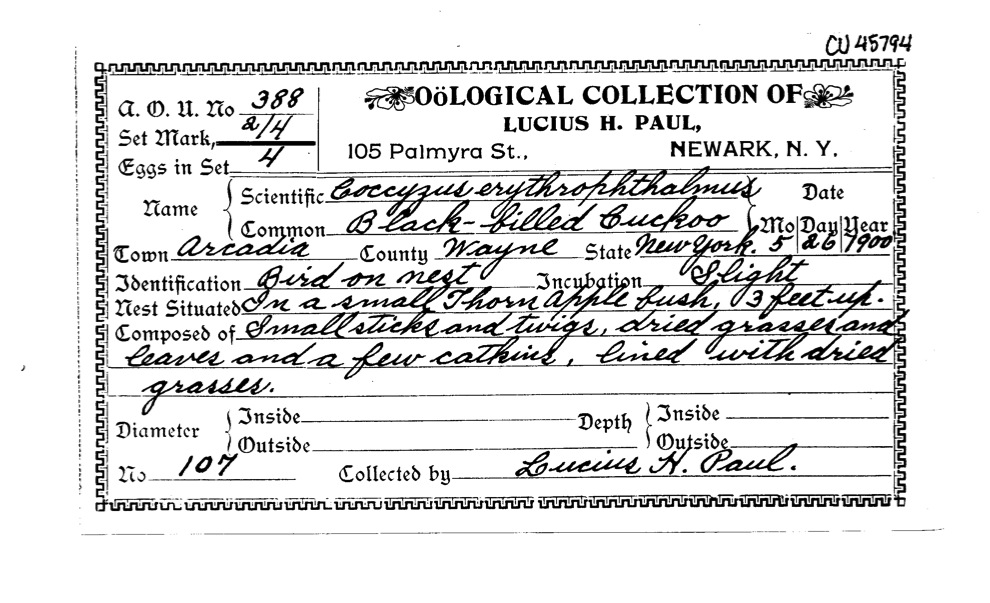 CU 45794
A. O. U. No 388
OöLOGICAL COLLECTION OF
Set Mark, 2/4
LUCIUS H. PAUL,
Eggs in Set 4
105 Palmyra St., NEWARK, N. Y.
Name Scientific Coccyzus erythrophthalmus Date
Common Black-billed Cuckoo Mo Day Year
Town Arcadia County Wayne State New York. 5 26 1900
Identification Bird on nest Incubation Slight
Nest Situated In a small Thorn Apple bush, 3 feet up.
Composed of Small sticks and twigs, dried grasses and
leaves and a few catkins, lined with dried
grasses.
Diameter Inside Depth Inside
Outside Outside
No 107 Collected by Lucius H. Paul.